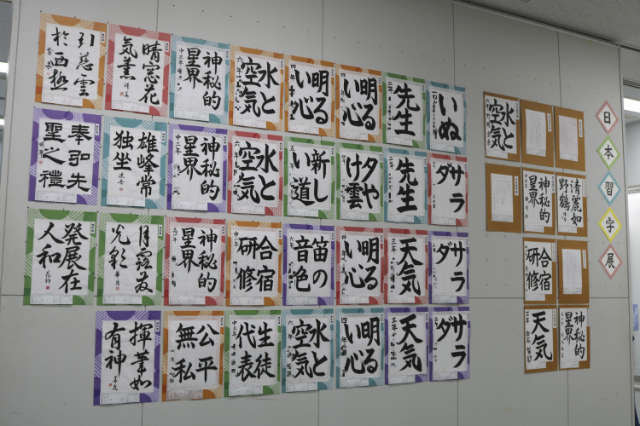 引慈雲
於西極
晴窓花
気薫
神秘的
星界
水と
空気
明る
い心
明る
い心
先生
いぬ
聖之禮
雄峰常
独坐
神秘的
星界
水と
空気
新し
い道
夕や
け雲
先生
サラ
ダ
発展在
人和
月露
光彩
神秘的
星界
合宿
研修
笛の
音色
明る
い心
天気
サラ
ダ
揮筆如
有神
公平
無私
生徒
代表
水と
空気
明る
い心
天気
サラ
ダ
水と
空気
神秘的
星界
野鶴
合宿
研修
天気
神秘的
星界
日本習字展